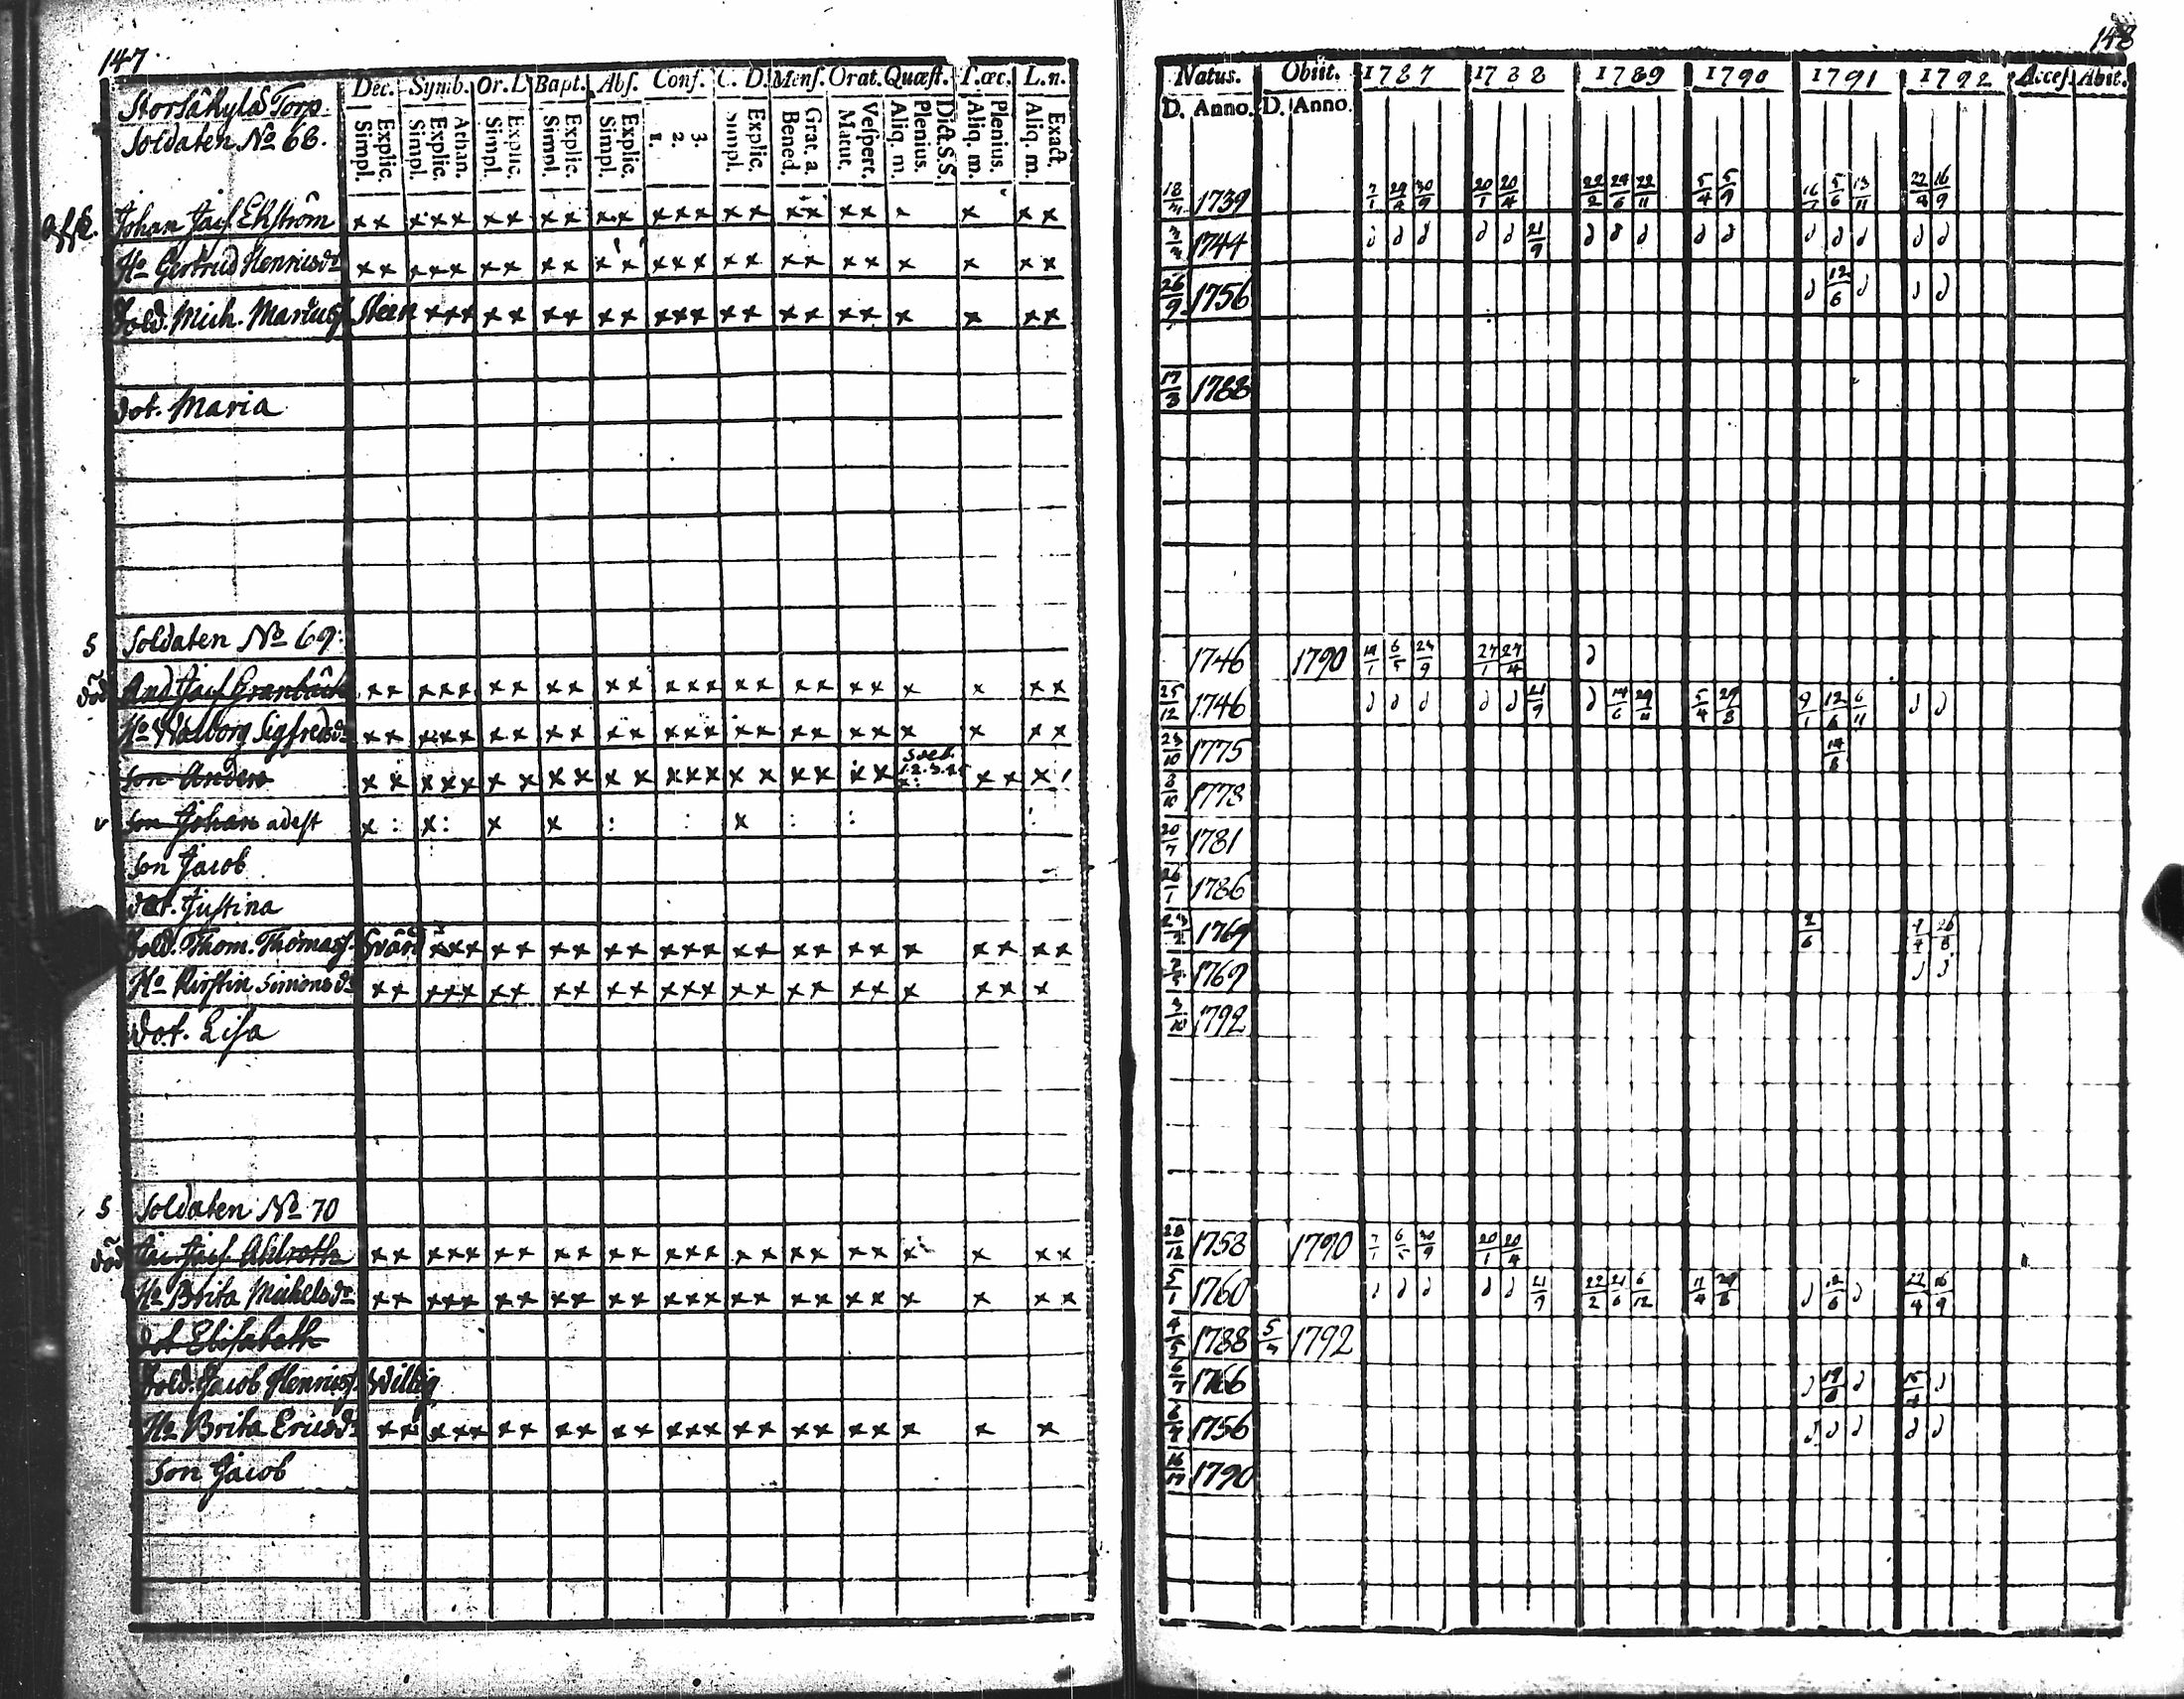 147.
Storsäkylä Torp.
Soldaten No 68.
Dec. Symb. Or. D Bapt. Abs. Conf. C. D. Mens. Orat. Quæst. T. œc. L. n.
Simpl. Explic. Simpl. Explic. Athan. Simpl. Explic. Simpl. Explic. Simpl. Explic. 1. 2. 3. Simpl. Explic. Bened. Grat. a. Matut. Vespert. Aliq. m. Plenius. Dict. S.S. Aliq. m. Plenius. Aliq. m. Exact.
Johan Jacs. Ekström
Ho Gertrud Henricsdr
Sold. Mich. Martiss. Steen
dot. Maria
S Soldaten No 69.
död And. Jacs. Granbäck
Ho Walborg Sigfredsdr
son Anders
v son Johan adest
son Jacob
dot. Justina
Sold. Thom. Thomass. Svärd
Ho Kirstin Simonsdr
dot. Lisa
S Soldaten No 70
död Jac. Jacs. Ahlroth
Ho Brita Michelsdr
dot Elisabeth
Sold. Jacob Henrics. Willig
Ho Brita Ericsdr
Son Jacob
148
Natus. Obiit. 1787 1788 1789 1790 1791 1792 Acces. Abiit.
D. Anno. D. Anno.
1739 7/1 30/9 20/1 20/4 22/2 24/6 22/11 5/4 5/9 5/6 13/11 16/9
1744 21/9
26/9 1756 12/6
17/3 1788
1746 1790 6/5 27/1 27/4
25/12 1746 21/9 14/6 29/11 5/4 29/8 9/1 12/6 6/11
23/10 1775 14/8
1778
20/7 1781
26/1 1786
1769 2/6
1769
3/10 1792
28/12 1758 1790 7/1 6/5 30/9 20/1 20/4
5/1 1760 21/9 22/2 21/6 6/12 11/4 29/8 12/6 22/4 16/9
4/5 1788 5/7 1792
6/7 1766
1756
1790